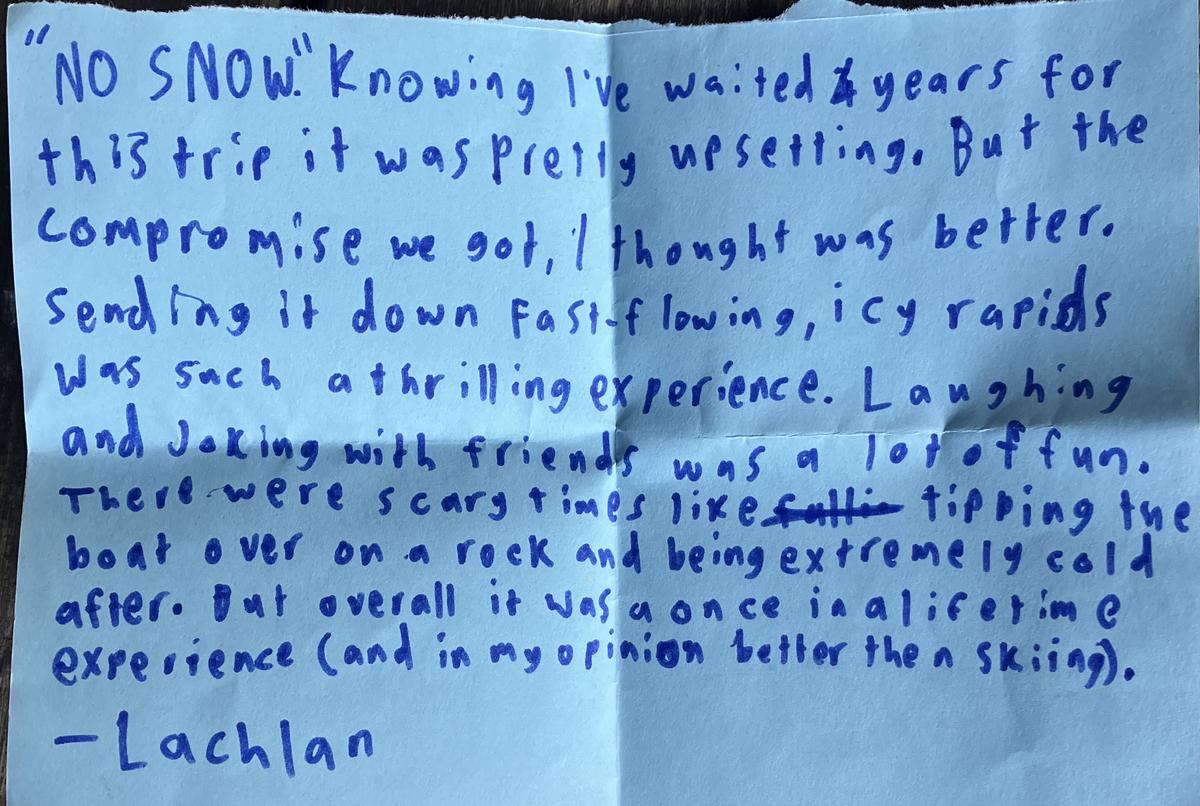 "NO SNOW." Knowing I've waited 4 years for
this trip it was pretty upsetting. But the
compromise we got, I thought was better.
Sending it down fast-flowing, icy rapids
was such a thrilling experience. Laughing
and Joking with friends was a lot of fun.
There were scary times like tipping the
boat over on a rock and being extremely cold
after. But overall it was a once in a lifetime
experience (and in my opinion better then skiing).
-Lachlan